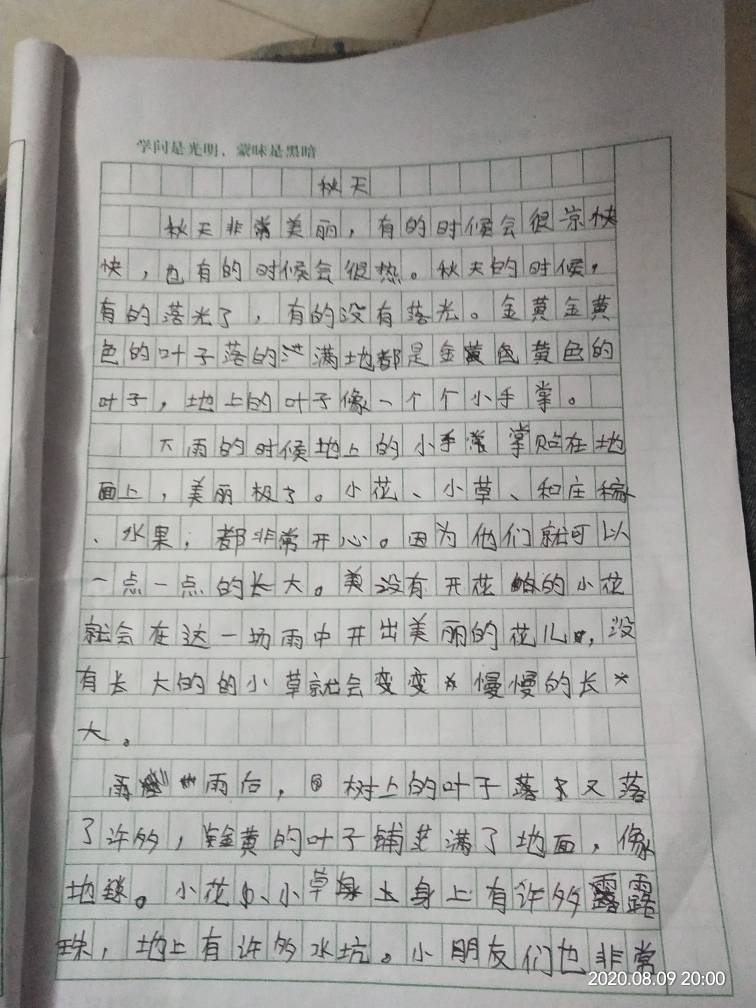 学问是光明，蒙昧是黑暗
秋天
秋天非常美丽，有的时候会很凉快
快，也有的时候会很热。秋天的时候，
有的落光了，有的没有落光。金黄金黄
色的叶子落的满地都是金黄色黄色的
叶子，地上的叶子像一个个小手掌。
下雨的时候地上的小手掌贴在地
面上，美丽极了。小花、小草、和庄稼
、水果，都非常开心。因为他们就可以
一点一点的长大。没有开花的小花
就会在这一场雨中开出美丽的花儿，没
有长大的的小草就会变变慢慢的长
大。
雨后，树上的叶子落了又落
了许多，金黄的叶子铺满了地面，像
地毯。小花、小草身上有许多露
珠，地上有许多水坑。小朋友们也非常
2020.08.09 20:00